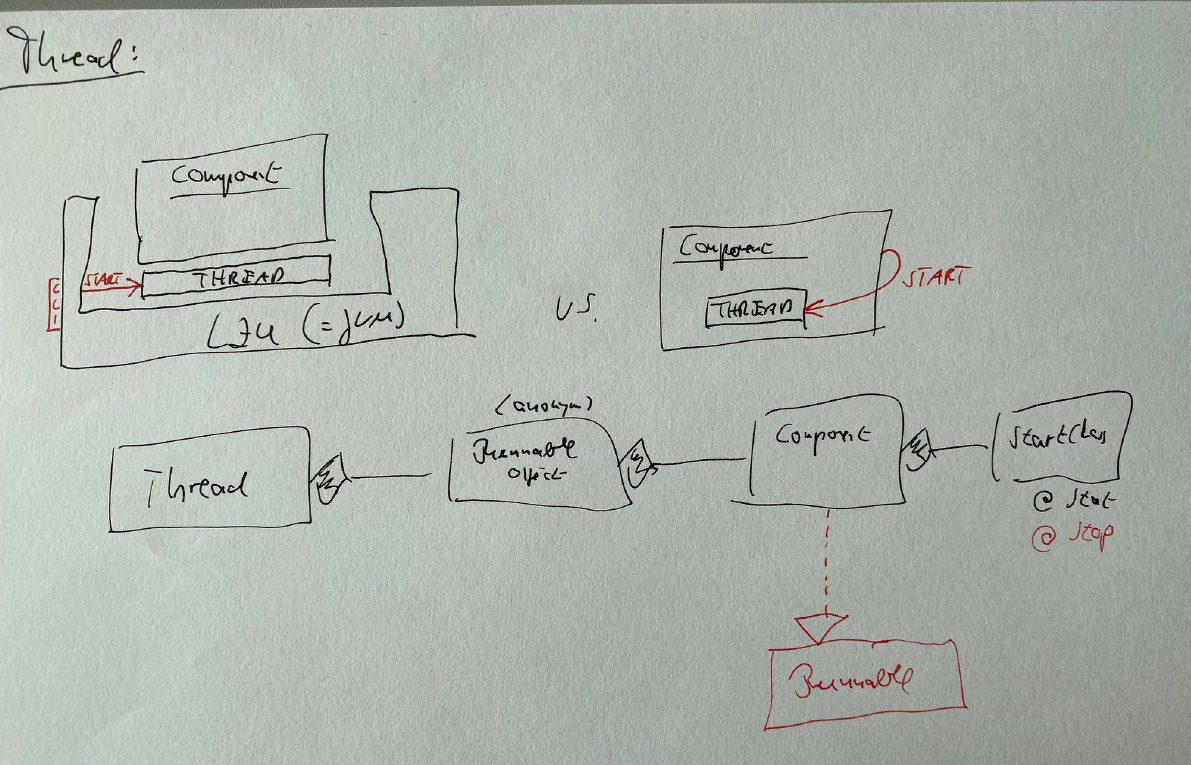 Thread:
Component
START
THREAD
CLI
LZU (=JVM)
vs.
Component
THREAD
START
Thread
(anonym)
Runnable
Object
Component
StartClass
@ Start
@ Stop
Runnable